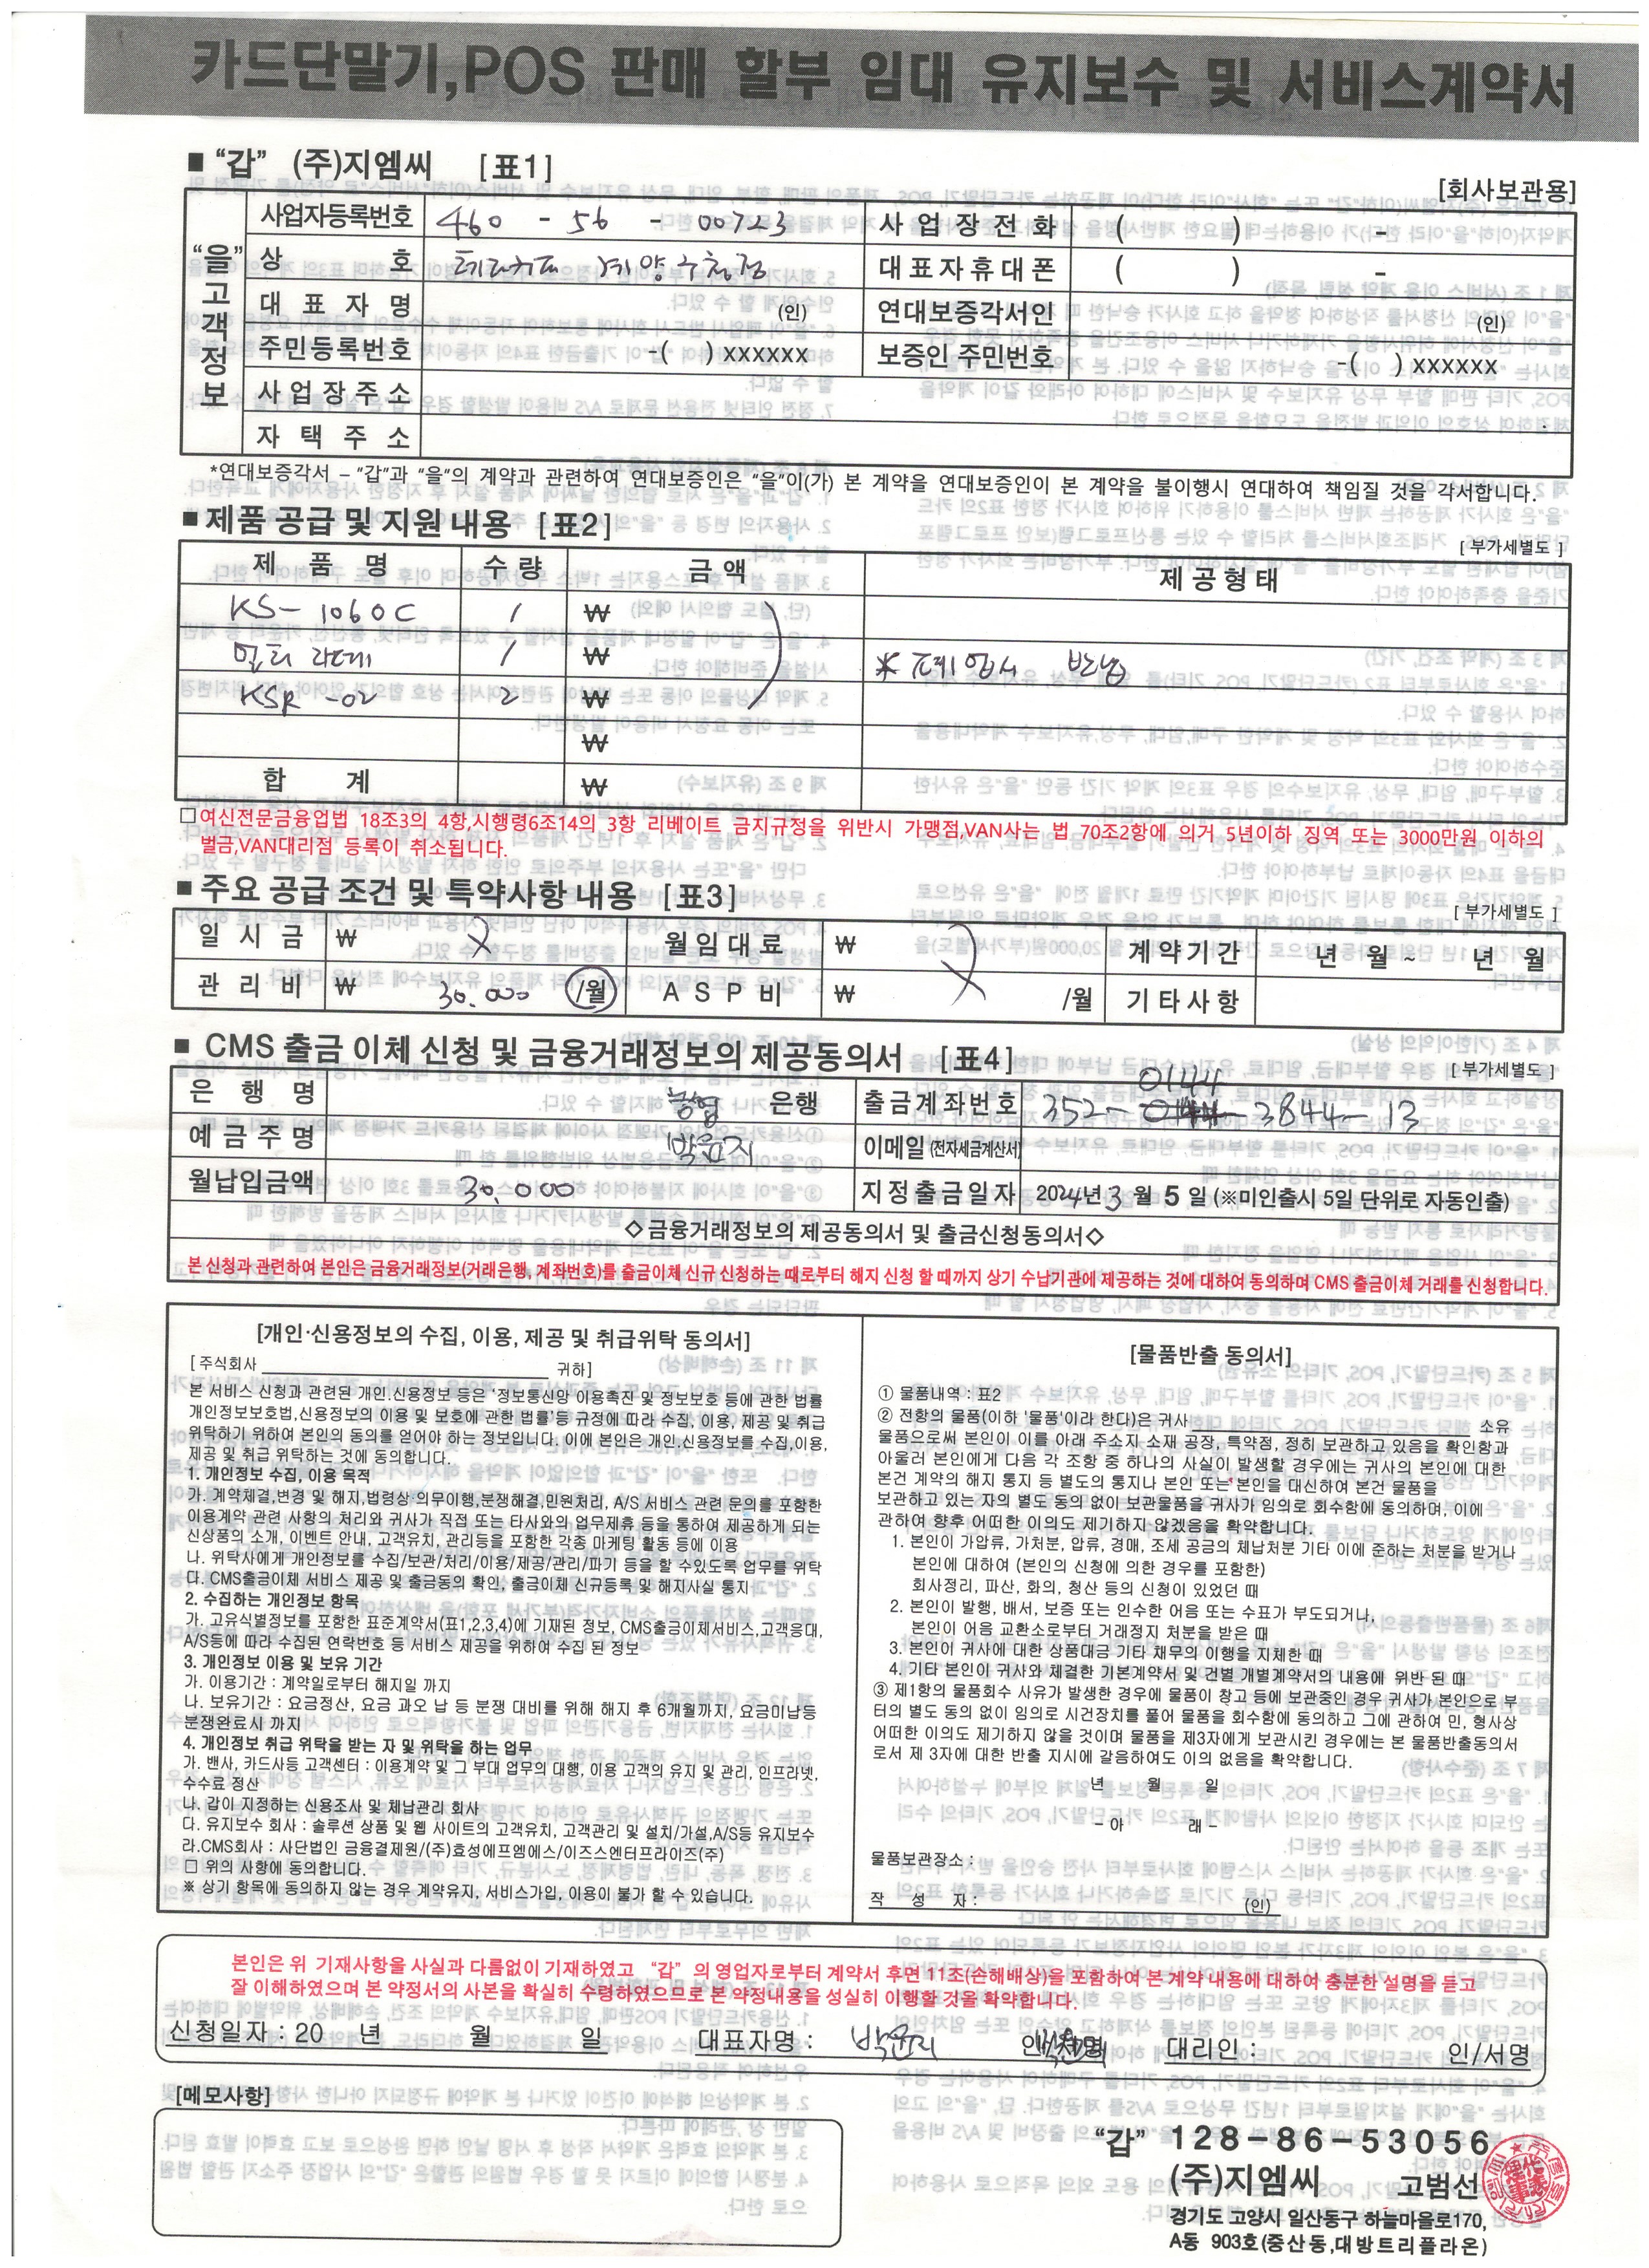 카드단말기,POS 판매 할부 임대 유지보수 및 서비스계약서
■ “갑” (주)지엠씨 [표1]
[회사보관용]
“을”고객정보
사업자등록번호 460 - 56 - 00723 사업장전화 ( ) -
상 호 계양구청점 대표자휴대폰 ( ) -
대 표 자 명 (인) 연대보증각서인 (인)
주민등록번호 -( ) xxxxxx 보증인 주민번호 -( ) xxxxxx
사업장주소
자 택 주 소
*연대보증각서 – “갑”과 “을”의 계약과 관련하여 연대보증인은 “을”이(가) 본 계약을 연대보증인이 본 계약을 불이행시 연대하여 책임질 것을 각서합니다.
■ 제품 공급 및 지원 내용 [표2]
[ 부가세별도 ]
제 품 명 수 량 금 액 제공형태
KS-1060C 1 ₩
멀티 1 ₩ * 반납
KSR-02 2 ₩
₩
합 계 ₩
□ 여신전문금융업법 18조3의 4항,시행령6조14의 3항 리베이트 금지규정을 위반시 가맹점,VAN사는 법 70조2항에 의거 5년이하 징역 또는 3000만원 이하의
벌금,VAN대리점 등록이 취소됩니다.
■ 주요 공급 조건 및 특약사항 내용 [표3]
[ 부가세별도 ]
일 시 금 ₩ X 월임대료 ₩ X 계약기간 년 월 ~ 년 월
관 리 비 ₩ 30.000 /월 A S P 비 ₩ /월 기타사항
■ CMS 출금 이체 신청 및 금융거래정보의 제공동의서 [표4]
[ 부가세별도 ]
은 행 명 농협 은행 출금계좌번호 352-0144-3844-13
예금주명 박윤지 이메일(전자세금계산서)
월납입금액 30.000 지정출금일자 2024년 3 월 5 일 (※미인출시 5일 단위로 자동인출)
◇금융거래정보의 제공동의서 및 출금신청동의서◇
본 신청과 관련하여 본인은 금융거래정보(거래은행, 계좌번호)를 출금이체 신규 신청하는 때로부터 해지 신청 할 때까지 상기 수납기관에 제공하는 것에 대하여 동의하며 CMS 출금이체 거래를 신청합니다.
[개인·신용정보의 수집, 이용, 제공 및 취급위탁 동의서]
[ 주식회사 귀하]
본 서비스 신청과 관련된 개인.신용정보 등은 '정보통신망 이용촉진 및 정보보호 등에 관한 법률
개인정보보호법,신용정보의 이용 및 보호에 관한 법률'등 규정에 따라 수집, 이용, 제공 및 취급
위탁하기 위하여 본인의 동의를 얻어야 하는 정보입니다. 이에 본인은 개인.신용정보를 수집,이용,
제공 및 취급 위탁하는 것에 동의합니다.
1. 개인정보 수집, 이용 목적
가. 계약체결,변경 및 해지,법령상 의무이행,분쟁해결,민원처리, A/S 서비스 관련 문의를 포함한
이용계약 관련 사항의 처리와 귀사가 직접 또는 타사와의 업무제휴 등을 통하여 제공하게 되는
신상품의 소개, 이벤트 안내, 고객유치, 관리등을 포함한 각종 마케팅 활동 등에 이용
나. 위탁사에게 개인정보를 수집/보관/처리/이용/제공/관리/파기 등을 할 수있도록 업무를 위탁
다. CMS출금이체 서비스 제공 및 출금동의 확인, 출금이체 신규등록 및 해지사실 통지
2. 수집하는 개인정보 항목
가. 고유식별정보를 포함한 표준계약서(표1,2,3,4)에 기재된 정보, CMS출금이체서비스,고객응대,
A/S등에 따라 수집된 연락번호 등 서비스 제공을 위하여 수집 된 정보
3. 개인정보 이용 및 보유 기간
가. 이용기간 : 계약일로부터 해지일 까지
나. 보유기간 : 요금정산, 요금 과오 납 등 분쟁 대비를 위해 해지 후 6개월까지, 요금미납등
분쟁완료시 까지
4. 개인정보 취급 위탁을 받는 자 및 위탁을 하는 업무
가. 밴사, 카드사등 고객센터 : 이용계약 및 그 부대 업무의 대행, 이용 고객의 유지 및 관리, 인프라넷,
수수료 정산
나. 갑이 지정하는 신용조사 및 체납관리 회사
다. 유지보수 회사 : 솔루션 상품 및 웹 사이트의 고객유치, 고객관리 및 설치/가설,A/S등 유지보수
라.CMS회사 : 사단법인 금융결제원/(주)효성에프엠에스/이즈스엔터프라이즈(주)
□ 위의 사항에 동의합니다.
※ 상기 항목에 동의하지 않는 경우 계약유지, 서비스가입, 이용이 불가 할 수 있습니다.
[물품반출 동의서]
① 물품내역 : 표2
② 전항의 물품(이하 '물품'이라 한다)은 귀사 소유
물품으로써 본인이 이를 아래 주소지 소재 공장, 특약점, 정히 보관하고 있음을 확인함과
아울러 본인에게 다음 각 조항 중 하나의 사실이 발생할 경우에는 귀사의 본인에 대한
본건 계약의 해지 통지 등 별도의 통지나 본인 또는 본인을 대신하여 본건 물품을
보관하고 있는 자의 별도 동의 없이 보관물품을 귀사가 임의로 회수함에 동의하며, 이에
관하여 향후 어떠한 이의도 제기하지 않겠음을 확약합니다.
1. 본인이 가압류, 가처분, 압류, 경매, 조세 공금의 체납처분 기타 이에 준하는 처분을 받거나
본인에 대하여 (본인의 신청에 의한 경우를 포함한)
회사정리, 파산, 화의, 청산 등의 신청이 있었던 때
2. 본인이 발행, 배서, 보증 또는 인수한 어음 또는 수표가 부도되거나,
본인이 어음 교환소로부터 거래정지 처분을 받은 때
3. 본인이 귀사에 대한 상품대금 기타 채무의 이행을 지체한 때
4. 기타 본인이 귀사와 체결한 기본계약서 및 건별 개별계약서의 내용에 위반 된 때
③ 제1항의 물품회수 사유가 발생한 경우에 물품이 창고 등에 보관중인 경우 귀사가 본인으로 부
터의 별도 동의 없이 임의로 시건장치를 풀어 물품을 회수함에 동의하고 그에 관하여 민, 형사상
어떠한 이의도 제기하지 않을 것이며 물품을 제3자에게 보관시킨 경우에는 본 물품반출동의서
로서 제 3자에 대한 반출 지시에 갈음하여도 이의 없음을 확약합니다.
년 월 일
- 아 래 -
물품보관장소 :
작 성 자 : (인)
본인은 위 기재사항을 사실과 다름없이 기재하였고 “갑” 의 영업자로부터 계약서 후면 11조(손해배상)을 포함하여 본 계약 내용에 대하여 충분한 설명을 듣고
잘 이해하였으며 본 약정서의 사본을 확실히 수령하였으므로 본 약정내용을 성실히 이행할 것을 확약합니다.
신청일자 : 20 년 월 일 대표자명 : 박윤지 인/서명 대리인 : 인/서명
[메모사항]
“갑” 128-86-53056
(주)지엠씨 고범선
경기도 고양시 일산동구 하늘마을로170,
A동 903호(중산동,대방트리플라온)